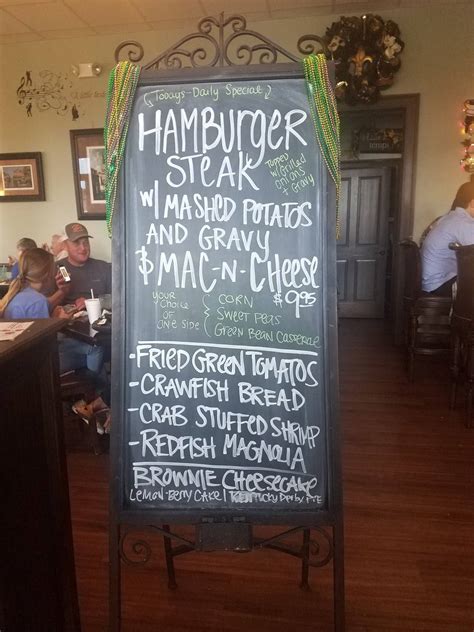 Todays-Daily Special
HAMBURGER
STEAK
Topped
w/ Grilled
onions
+ Gravy
w/ MASHED POTATOS
AND GRAVY
& MAC-N-CHEESE
$9.95
YOUR
CHOICE
OF
ONE SIDE
CORN
SWEET PEAS
GREEN BEAN CASSEROLE
-FRIED GREEN TOMATOS
-CRAWFISH BREAD
-CRAB STUFFED SHRIMP
-REDFISH MAGNOLIA
BROWNIE CHEESECAKE
LEMON-BERRY CAKE/ KENTUCKY DERBY PIE